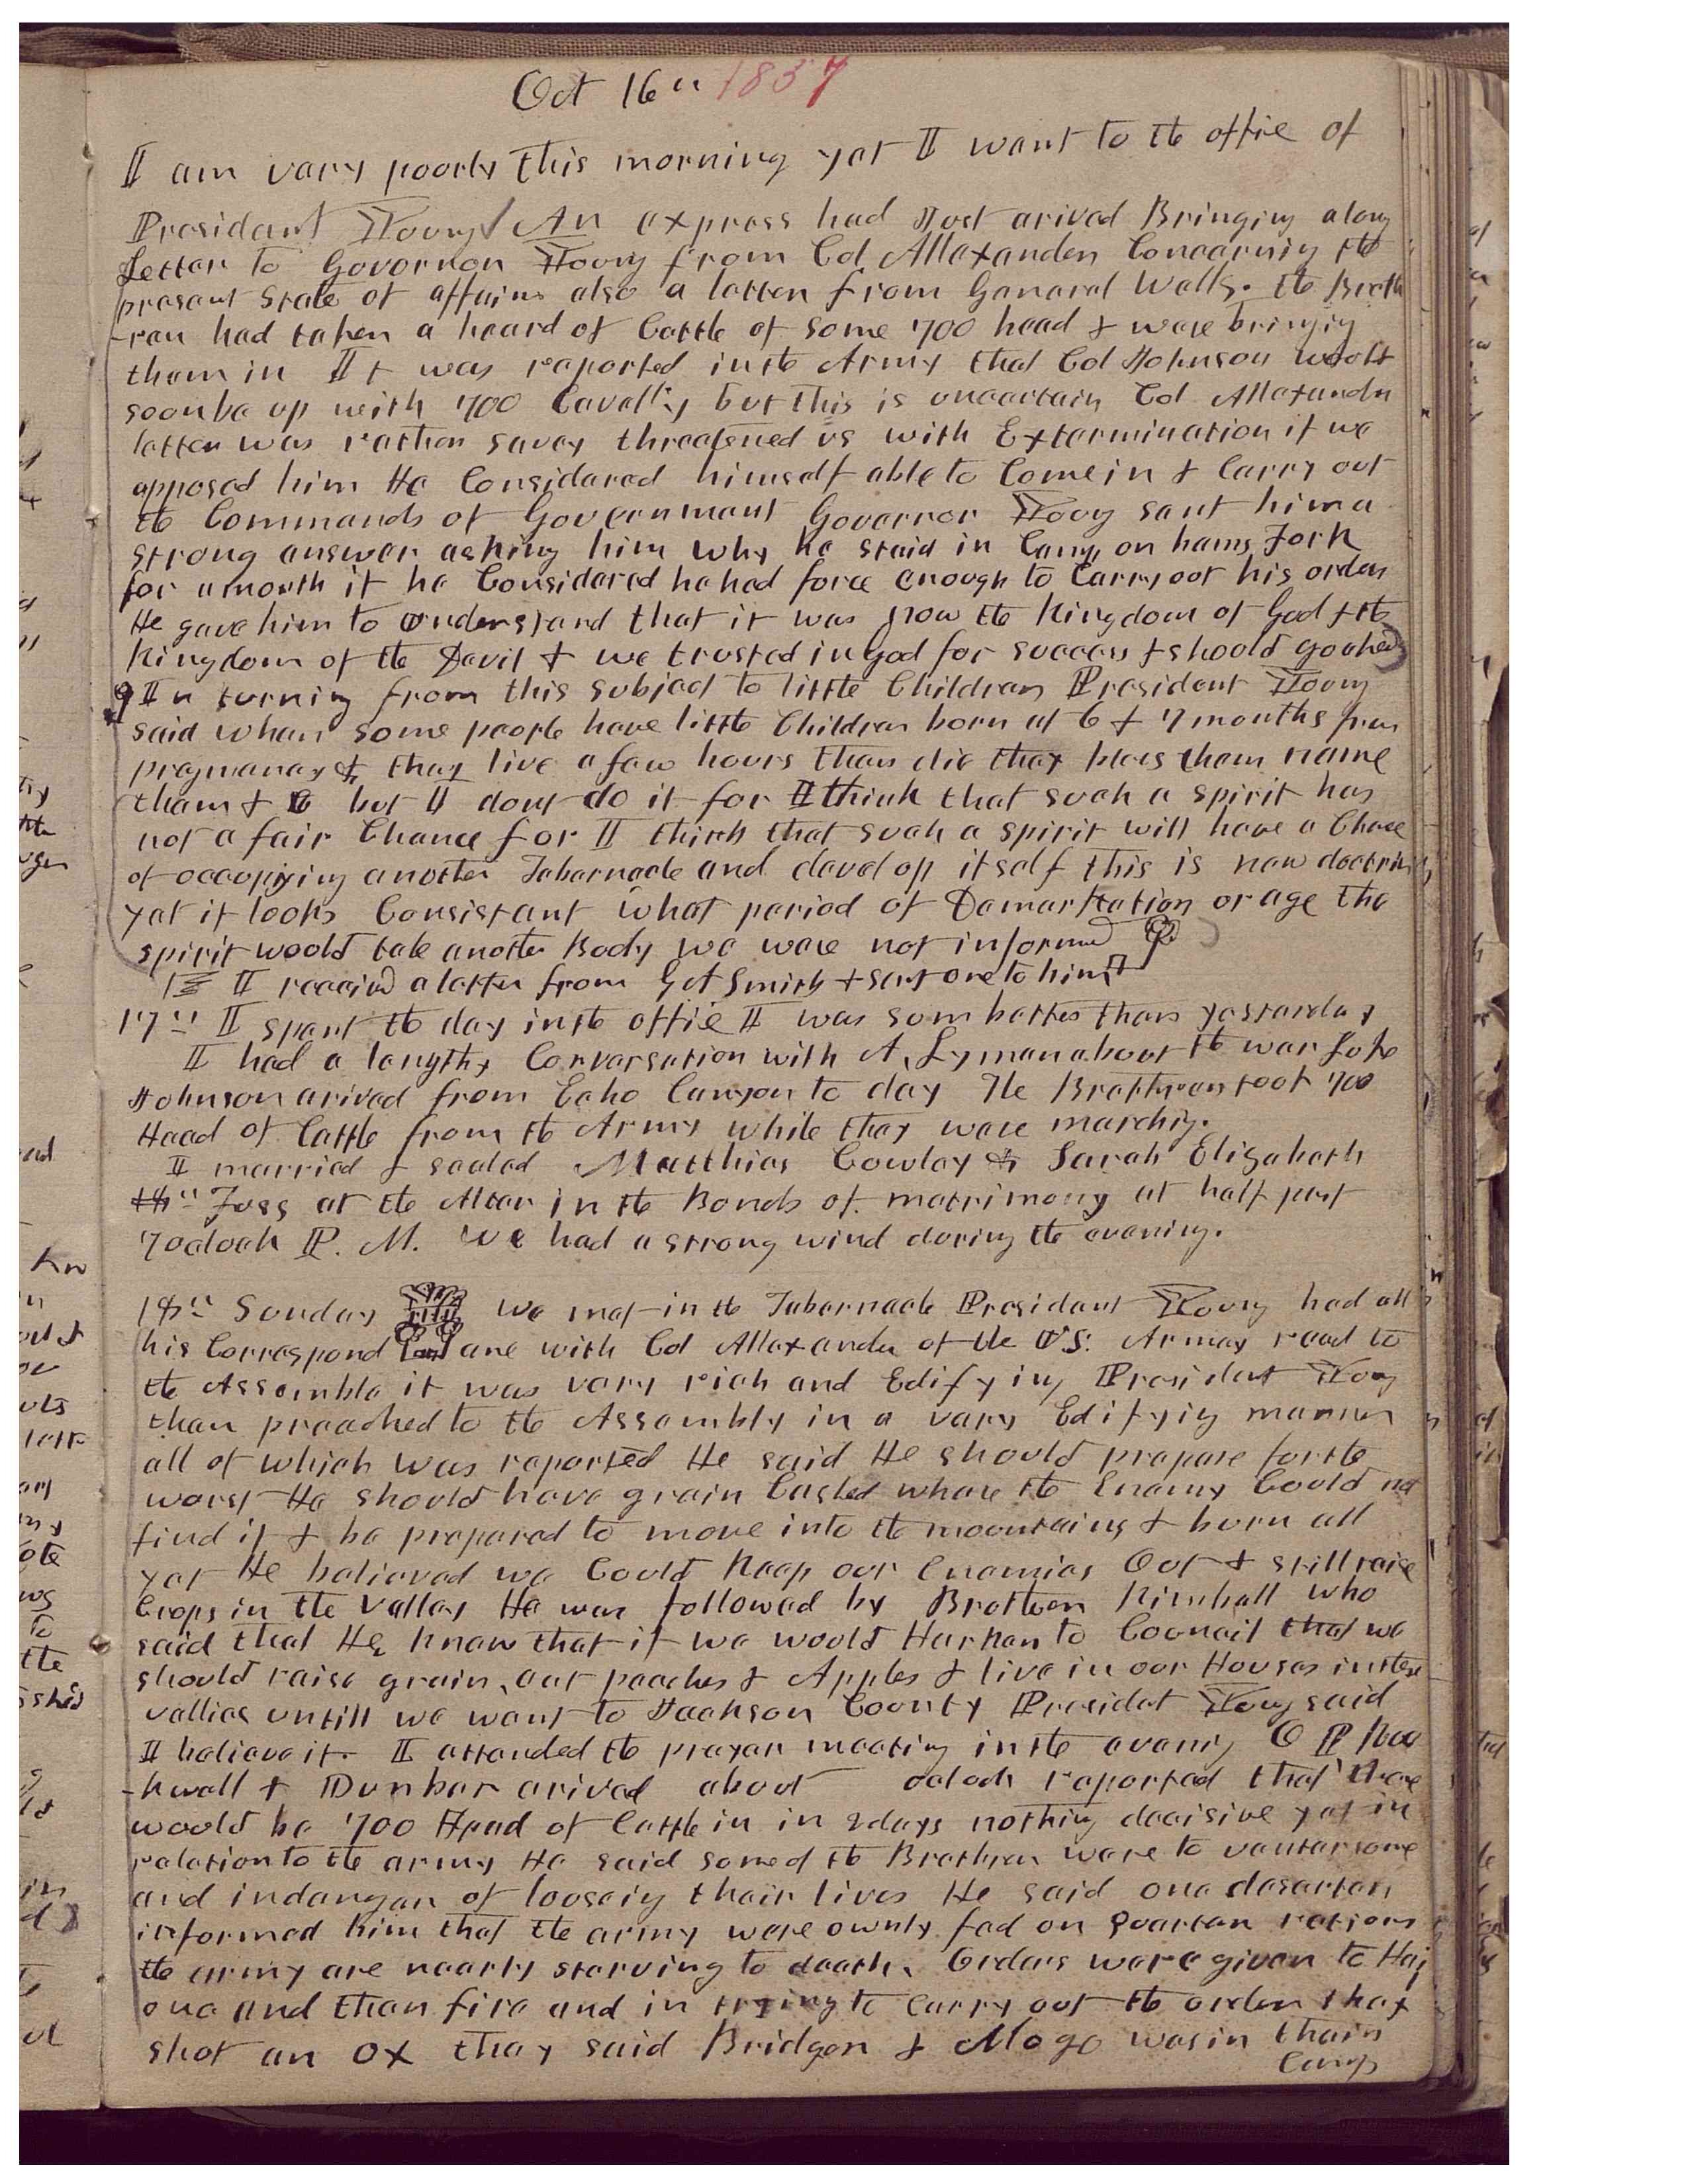 Oct 16" 1857
I am vary poorly this morning yet I want to the office of
President Young An express had Just arived Bringing along
Letter to Governor Young from Col Allexander Concerning the
presant State of affairs also a letter from General Wells. the Breth
-ren had taken a heard of Cattle of some 700 head & were bringing
them in It was reported in the Army that Col Johnson would
soon be up with 700 Cavalry but this is uncertain Col Allexander
letter was rather savey threatened us with Extermination if we
opposed him He Considered himself able to Come in & Carry out
the Commands of Government Governor Young sent him a
strong answer asking him why he staid in Camp on hams Fork
for a month if he Considered he had force enough to Carry out his orders
He gave him to understand that it was now the Kingdom of God & the
Kingdom of the Devil & we trusted in god for success & should go ahed
In turning from this subject to little Children President Young
said when some people have little Children born at 6 & 7 months from
pregnancy & they live a few hours then die they bless them name
them &c but I dont do it for I think that such a spirit has
not a fair Chance for I think that such a spirit will have a Chance
of occupying another Tabernacle and develop itself this is new doctrin
yet it looks Consistant What period of Demarkation or age the
spirit would take another Body we were not informed
I received a letter from G A Smith & sent one to him
17" I spent the day in the office I was som better than yesterday
I had a lengthy Conversation with A. Lyman about the war Luke
Johnson arived from Echo Canyon to day The Brethren took 700
Head of Cattle from the Army while they were marching.
I married & sealed Matthias Cowley & Sarah Elizabeth
18" Foss at the Altar in the Bonds of matrimony at half past
7 oclock P. M. We had a strong wind during the evening.
18" Sunday We met in the Tabernacle President Young had all
his Correspondance with Col Allexander of the U.S. Armey read to
the Assemble it was vary rich and Edifying President Young
then preached to the Assembly in a vary Edifying manner
all of which was reported He said He should prepare for the
worst He should have grain Cashed where the Enemy Could not
find it & be prepared to move into the mountains & burn all
yet He believed we Could keep our Enemies Out & still raise
Crops in the valley He was followed by Brother Kimball who
said that He knew that if we would Harken to Council that we
should raise grain, eat peaches & Apples & live in our Houses in these
vallies untill we went to Jackson County President Young said
I believe it. I attended the prayer meeting in the evening O P Roc
-kwell & Dunbar arived about oclock reported that there
would be 700 Head of Cattle in in 2 days nothing decisive yet in
relation to the army He said some of the Brethren were to ventersome
and in danger of looseing their lives He said one desarter
informed him that the army were ownly fed on quarter rations
the army are nearly starving to death. Orders were given to Hai
one and then fire and in trying to carry out the order they
shot an ox they said Bridger & Mogo was in their
Camp